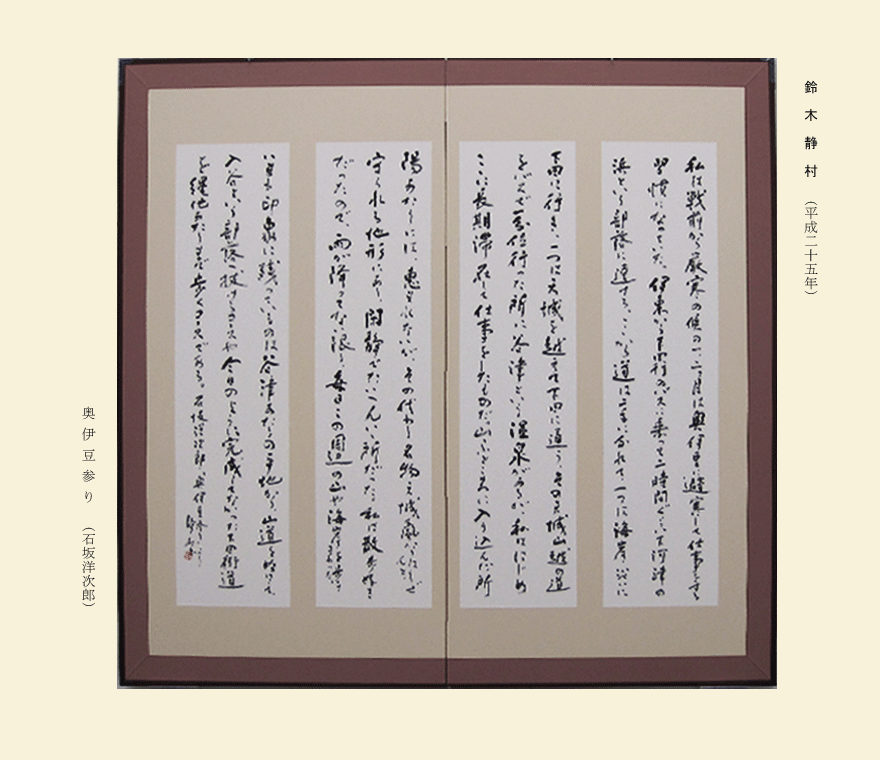 鈴木静村 （平成二十五年）
私は戦前から厳寒の候の一、二月は奥伊豆に避寒して仕事をする
習慣になっていた。伊東から下田行のバスに乗って二時間ぐらいで河津の
浜という部落に達する。ここから道は二手に分れて、一つは海岸沿いに
下田に行き、一つは天城を越えて下田に通う。その天城山越の道
をバスで行った所に谷津という温泉があるが、私ははじめ
ここに長期滞在して仕事をしたものだ。山ふところに入り込んだ所
陽あたりには、恵まれないが、その代わり名物天城風
守られる地形にあり、閑静でたいへんいい所だった。私は散歩好き
だったので、雨が降ってない限り、毎日この周辺の山や海岸
いまも印象に残っているのは谷津あたりの平地から山道を
入谷という部落 抜けるコースや今日のように完成していなかった 街道
を縄地あたりまで歩くコースである。石坂洋次郎 奥伊豆参り
奥伊豆参り （石坂洋次郎）